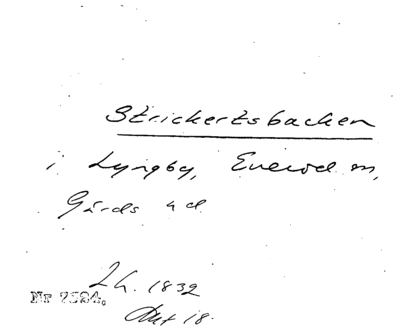 Strickertsbacken
i Lyngby, Everöd sn,
Gärds hd
Lh. 1832
Nr 7594.
Akt 18.